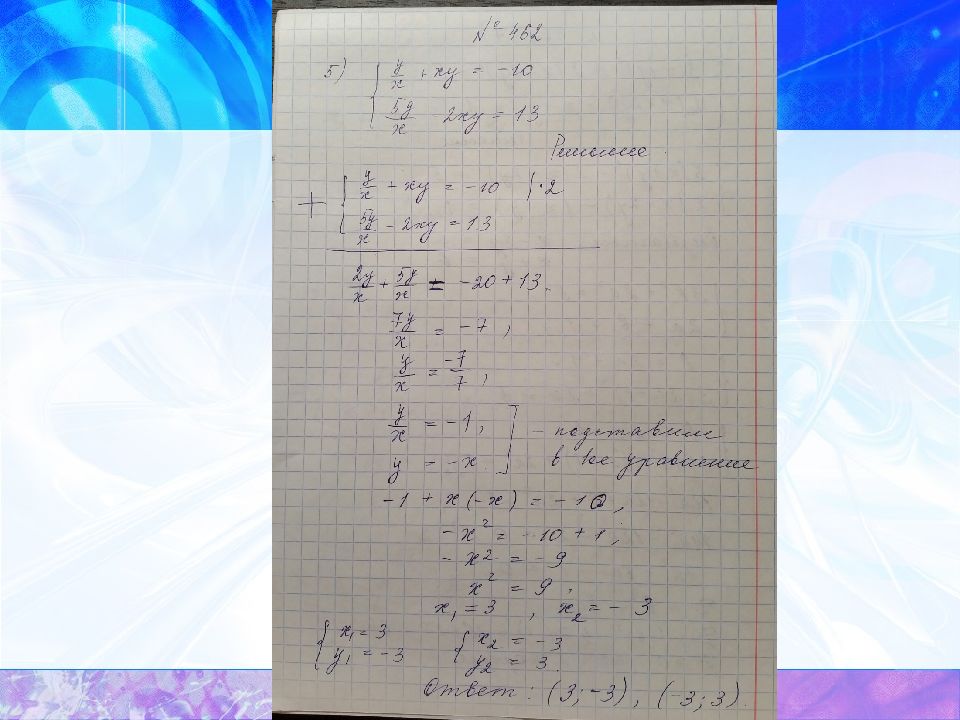 № 462
5) { y/x + xy = -10
5y/x - 2xy = 13
Решение.
+ { y/x + xy = -10 | · 2
5y/x - 2xy = 13
2y/x + 5y/x = -20 + 13.
7y/x = -7 ,
y/x = -7/7 ,
y/x = -1 , ] - подставим
y = -x. в 1ое уравнение
-1 + x(-x) = -10 ,
-x² = -10 + 1 ;
-x² = -9
x² = 9 .
x₁ = 3 , x₂ = -3
{ x₁ = 3 { x₂ = -3
y₁ = -3 y₂ = 3.
Ответ: (3; -3), (-3; 3).